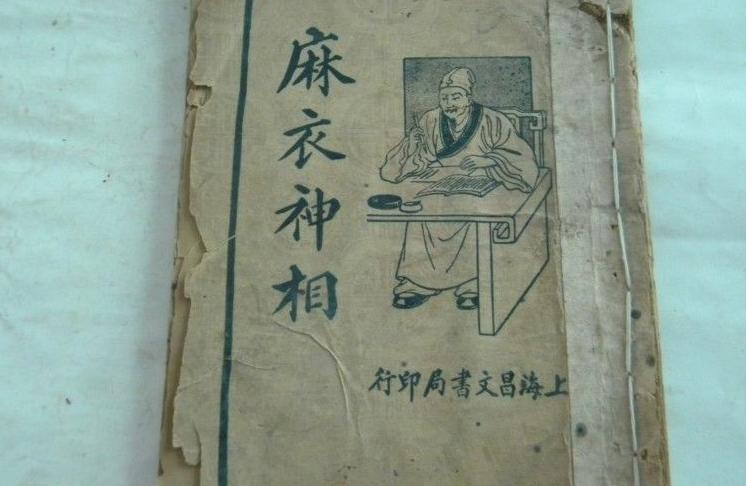 麻衣神相
上海昌文書局印行